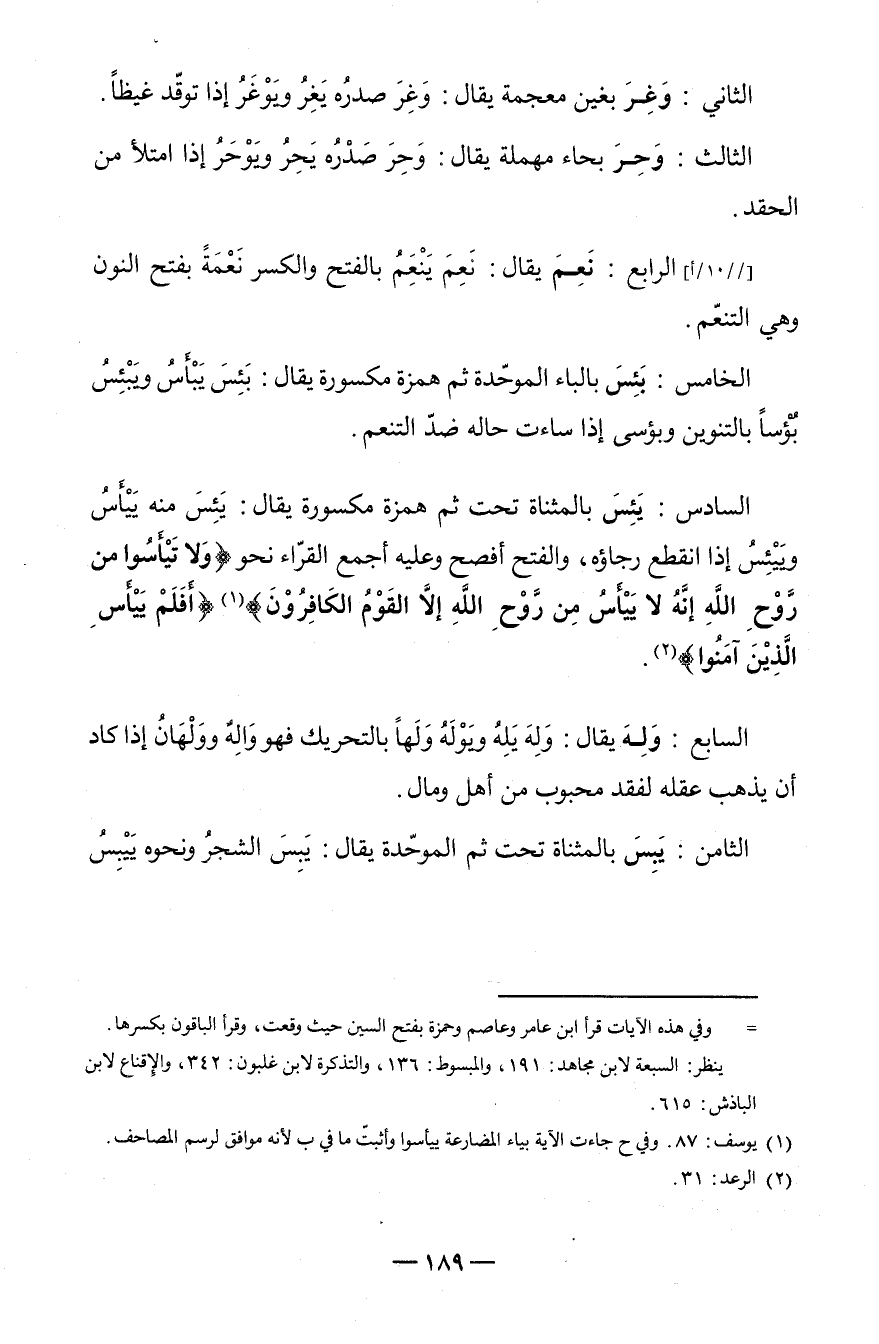 الثاني : وَغِـرَ بغين معجمة يقال : وَغِرَ صدرُه يَغِرُ ويَوْغَرُ إذا توقّد غيظاً.
الثالث : وَحِـرَ بحاء مهملة يقال : وَحِرَ صَدْرُه يَحِرُ ويَوْحَرُ إذا امتلأ من
الحقد .
[//١٠/أ] الرابع : نَعِـمَ يقال : نَعِمَ يَنْعَِمُ بالفتح والكسر نَعْمَةً بفتح النون
وهي التنعّم .
الخامس : بَئِسَ بالباء الموحّدة ثم همزة مكسورة يقال : بَئِسَ يَبْأَسُ ويَبْئِسُ
بُؤْساً بالتنوين وبؤسى إذا ساءت حاله ضدّ التنعم .
السادس : يَئِسَ بالمثناة تحت ثم همزة مكسورة يقال : يَئِسَ منه يَيْأَسُ
ويَيْئِسُ إذا انقطع رجاؤه، والفتح أفصح وعليه أجمع القرّاء نحو ﴿وَلا تَيْأَسُوا من
رَّوْحِ اللَّهِ إنَّهُ لا يَيْأَسُ مِن رَّوْحِ اللَّهِ إلَّا القَوْمُ الكَافِرُوْنَ﴾(١) ﴿أَفَلَمْ يَيْأَسِ
الَّذِيْنَ آمَنُوا﴾(٢) .
السابع : وَلِـهَ يقال : وَلِهَ يَلِهُ ويَوْلَهُ وَلَهاً بالتحريك فهو وَالِهٌ ووَلْهَانُ إذا كاد
أن يذهب عقله لفقد محبوب من أهل ومال .
الثامن : يَبِسَ بالمثناة تحت ثم الموحّدة يقال : يَبِسَ الشجرُ ونحوه يَيْبِسُ
= وفي هذه الآيات قرأ ابن عامر وعاصم وحمزة بفتح السين حيث وقعت، وقرأ الباقون بكسرها .
ينظر : السبعة لابن مجاهد : ١٩١، والمبسوط : ١٣٦، والتذكرة لابن غلبون : ٣٤٢، والإقناع لابن
الباذش : ٦١٥.
(١) يوسف : ٨٧. وفي ح جاءت الآية بياء المضارعة ييأسوا وأثبتّ ما في ب لأنه موافق لرسم المصاحف .
(٢) الرعد : ٣١.
— ١٨٩ —